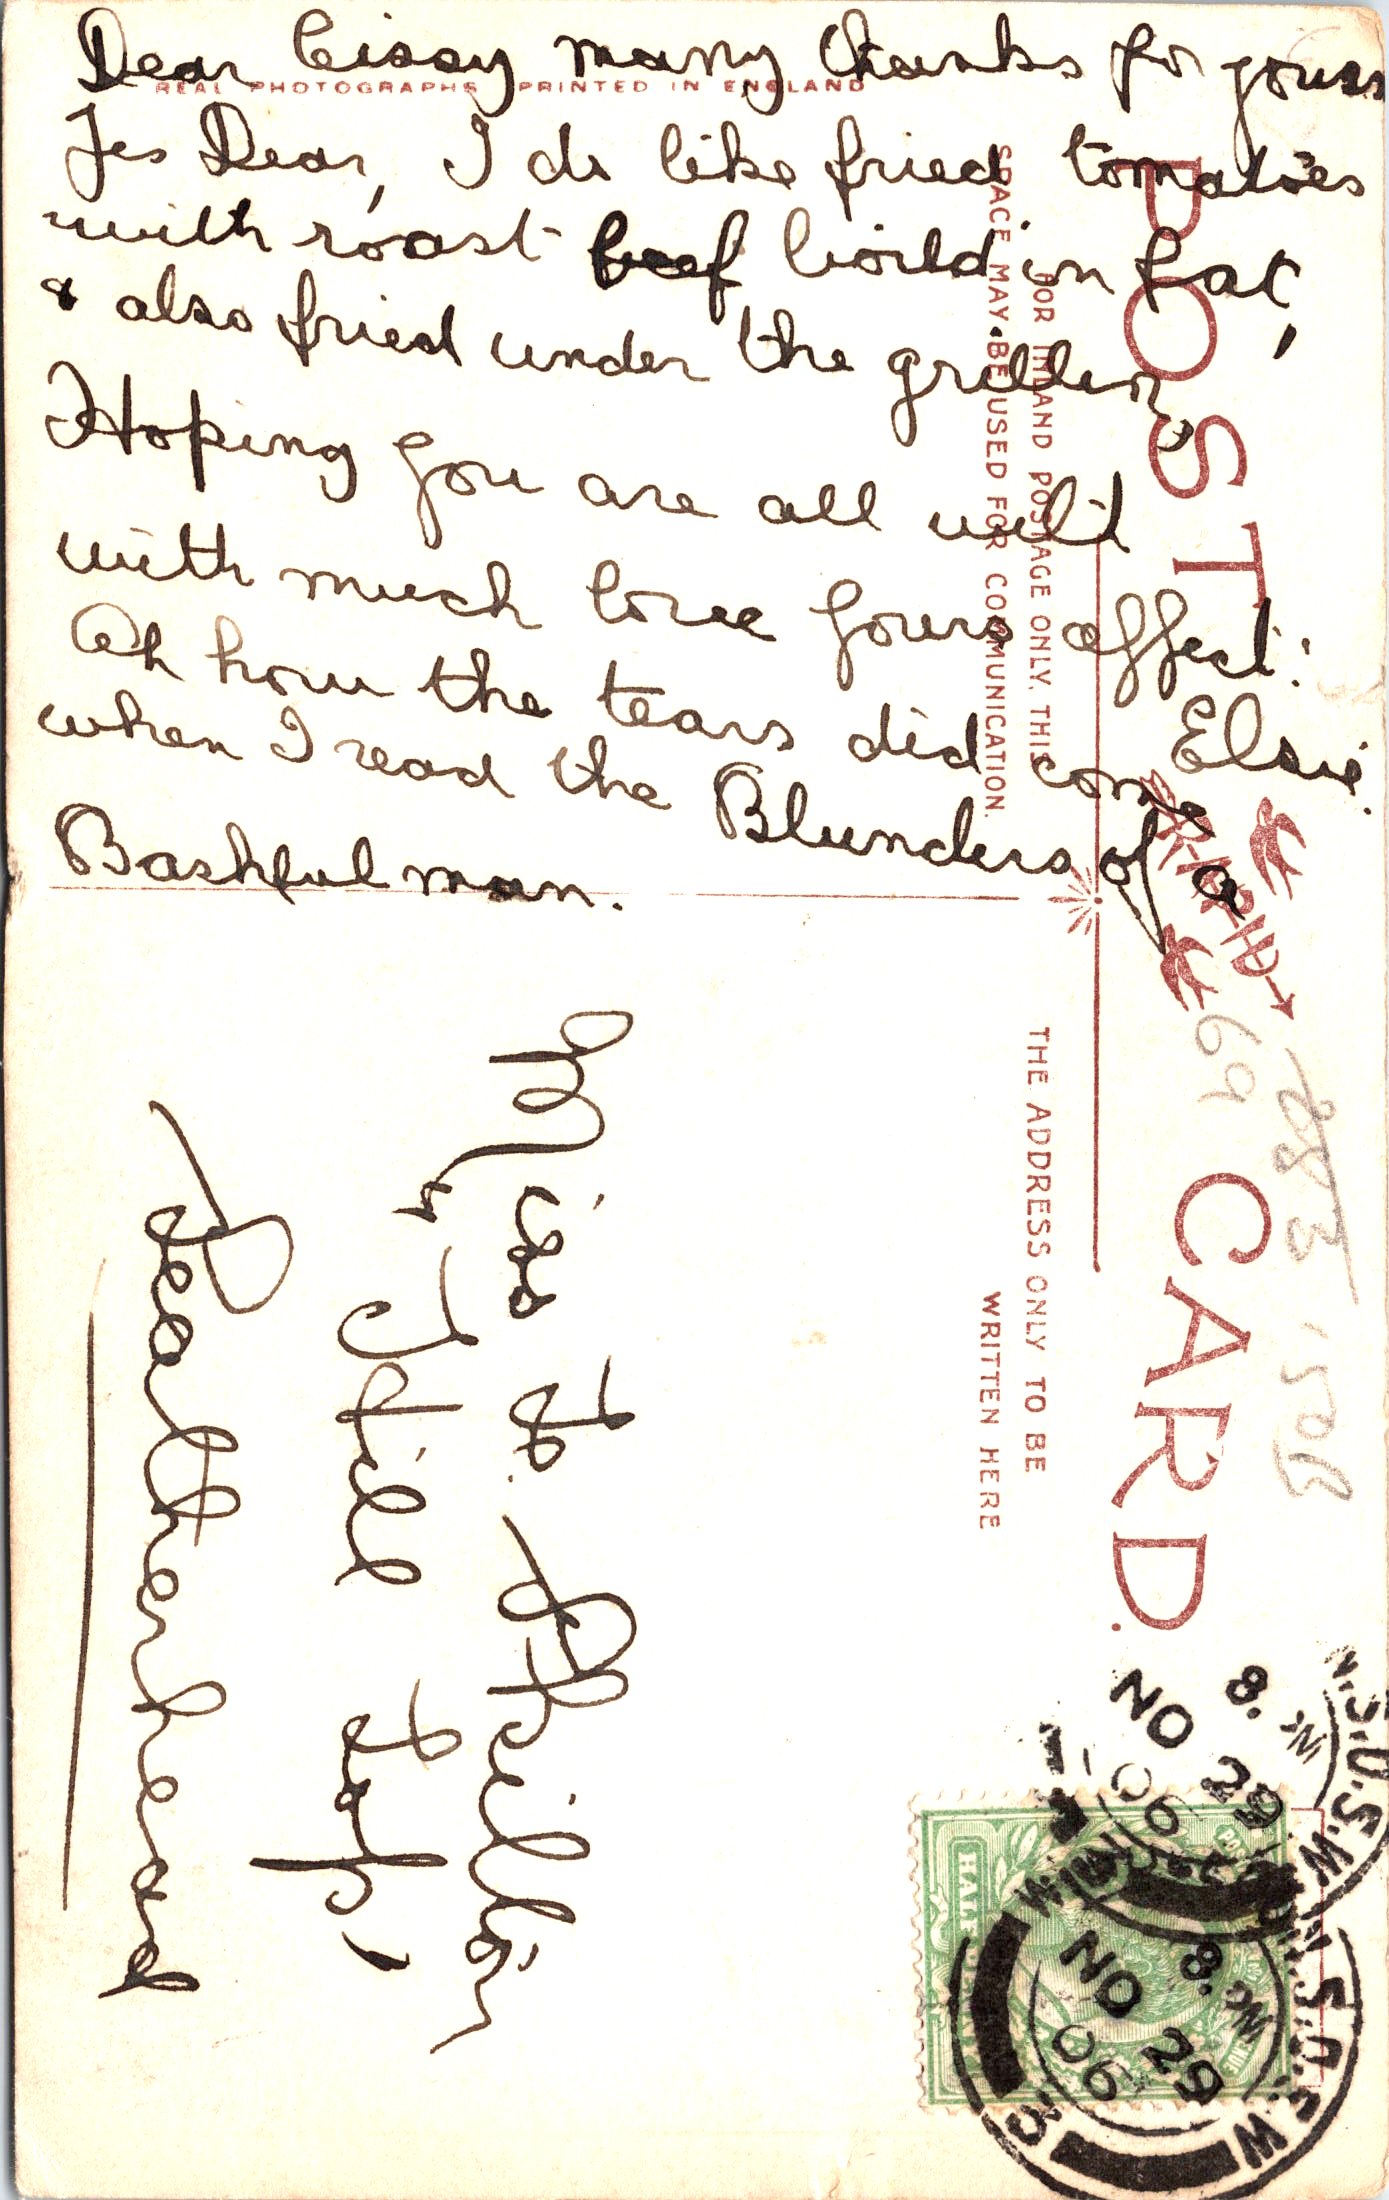 Dear Cissy many thanks for yours
Yes Dear, I do like fried tomatoes
with roast beef boild in fat,
& also fried under the griller,
Hoping you are all well
with much love yours affect:
Elsie.
Oh how the tears did come
when I read the Blunders of a
Bashful man.
REAL PHOTOGRAPHS PRINTED IN ENGLAND
POST CARD.
FOR INLAND POSTAGE ONLY, THIS
SPACE MAY BE USED FOR COMMUNICATION.
THE ADDRESS ONLY TO BE
WRITTEN HERE
Miss
Hill
Leatherhead
69
8. PM
NO 29
06
WIMBLEDON. S.O. S.W
8. PM
NO 29
06
N.S.O.S.W
HALFPENNY